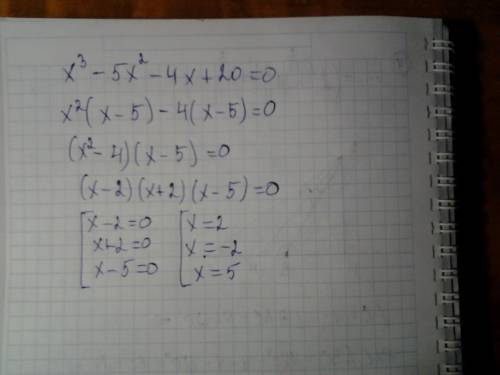 x³ - 5x² - 4x + 20 = 0
x²(x - 5) - 4(x - 5) = 0
(x² - 4)(x - 5) = 0
(x - 2)(x + 2)(x - 5) = 0
[x - 2 = 0 [x = 2
x + 2 = 0 x = -2
x - 5 = 0 x = 5